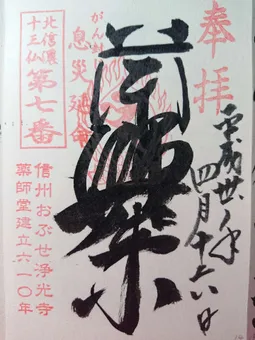 奉拝
平成
四月十六日
がん封じ
息災延命
北信濃
十三仏
第七番
信州おぶせ浄光寺
薬師堂建立六一〇年